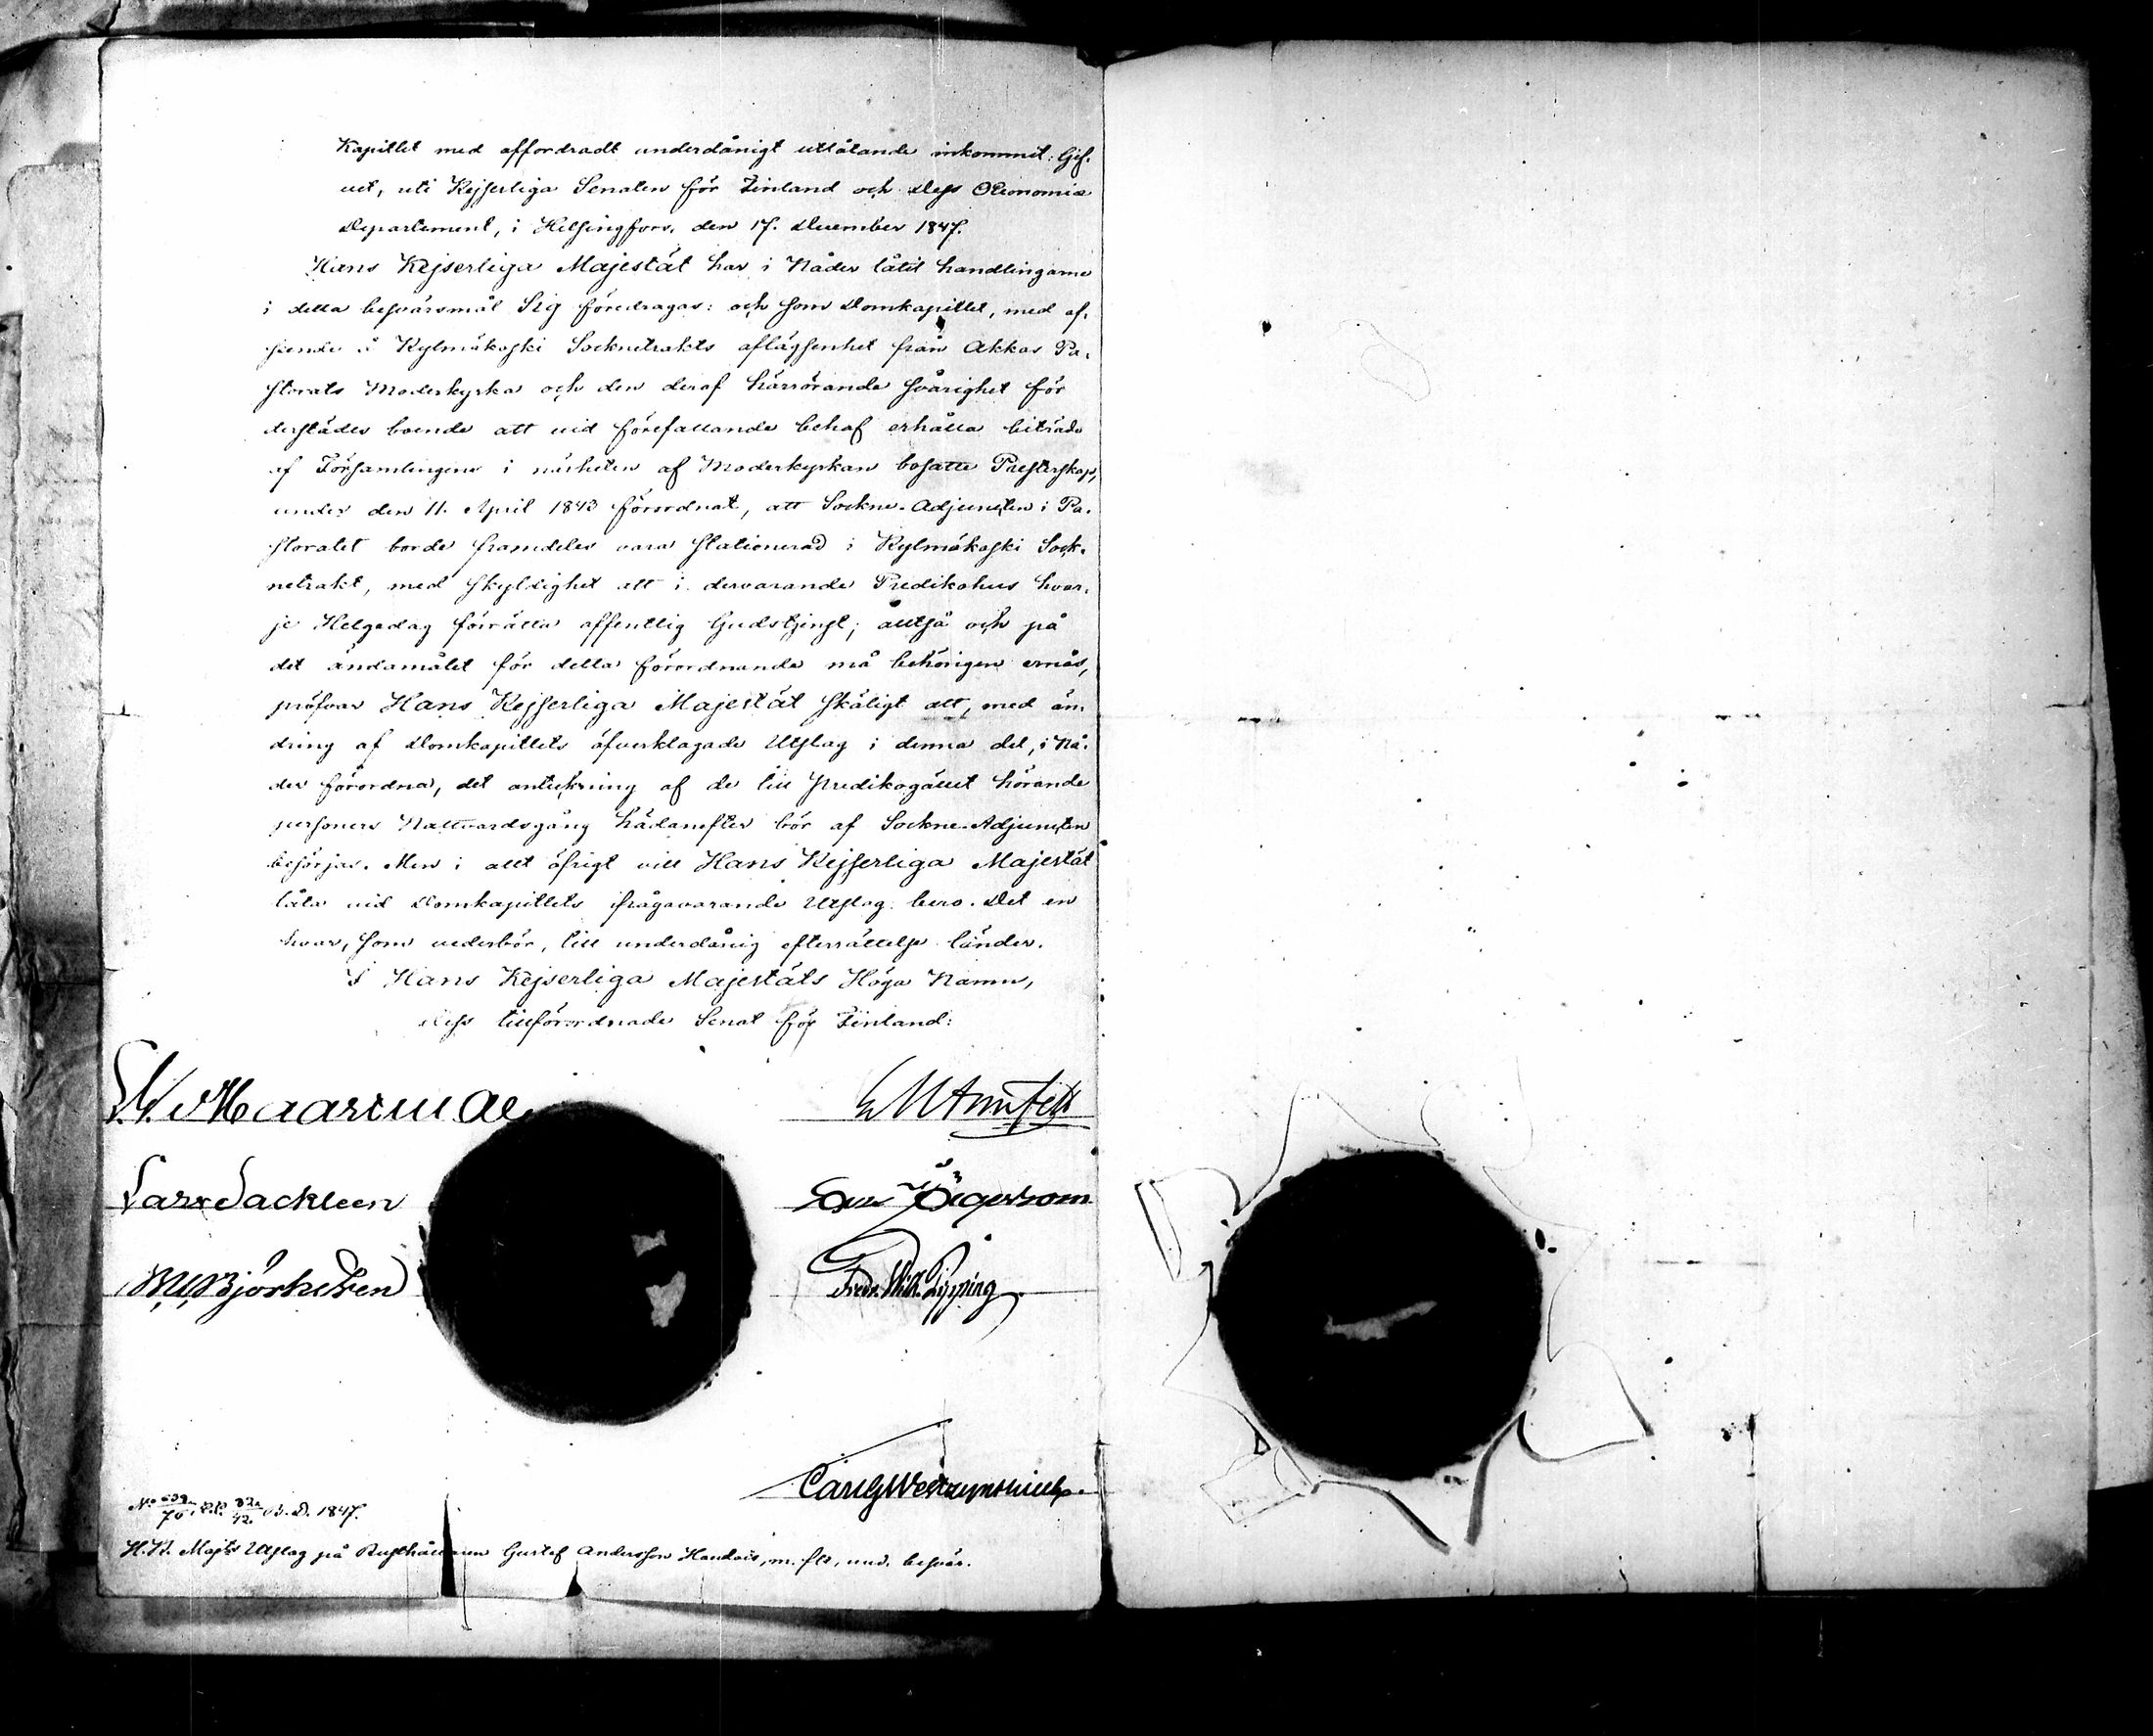 Kapitlet med affordradt underdånigt utlåtande inkommit: Gif-
vet, uti Kejserliga Senaten för Finland och dess Oeconomie
Departement, i Helsingfors, den 17. December 1847.
Hans Kejserliga Majestät har i Nåder låtit handlingarne
i detta besvärsmål Sig föredragas: och som Domkapitlet, med af-
seende å Kylmäkoski Socknetrakts aflägsenhet från Akkas Pa-
storats Moderkyrka och den deraf härrörande svårighet för
derstädes boende att vid förefallande behof erhålla biträde
af Församlingens i närheten af Moderkyrkan bosatte Presterskap,
under den 11. April 1843 förordnat, att Sockne-Adjuncten i Pa-
storatet borde framdeles vara stationerad i Kylmäkoski Sock-
netrakt, med skyldighet att i dervarande Predikohus hvar-
je Helgedag förrätta offentlig Gudstjenst; alltså och på
det ändamålet för detta förordnande må behörigen ernås,
pröfvar Hans Kejserliga Majestät skäligt att, med än-
dring af Domkapitlets öfverklagade Utslag i denna del, i Nå-
der förordna, det anteckning af de till predikogället hörande
personers Nattvardsgång hädanefter bör af Sockne-Adjuncten
besörjas. Men i allt öfrigt vill Hans Kejserliga Majestät
låta vid Domkapitlets ifrågavarande Utslag bero. Det en
hvar, som vederbör, till underdånig efterrättelse länder.
I Hans Kejserliga Majestäts Höga Namn,
Dess tillförordnade Senat för Finland:
Haartman
Lars Sackleen
Björkstén
Armfelt
Fredr. Wilh. Pipping
N:o E.D. 1847.
H.K. Maj:ts Utslag på Rusthållaren Gustaf Andersson m. fl:s, und. besvär.